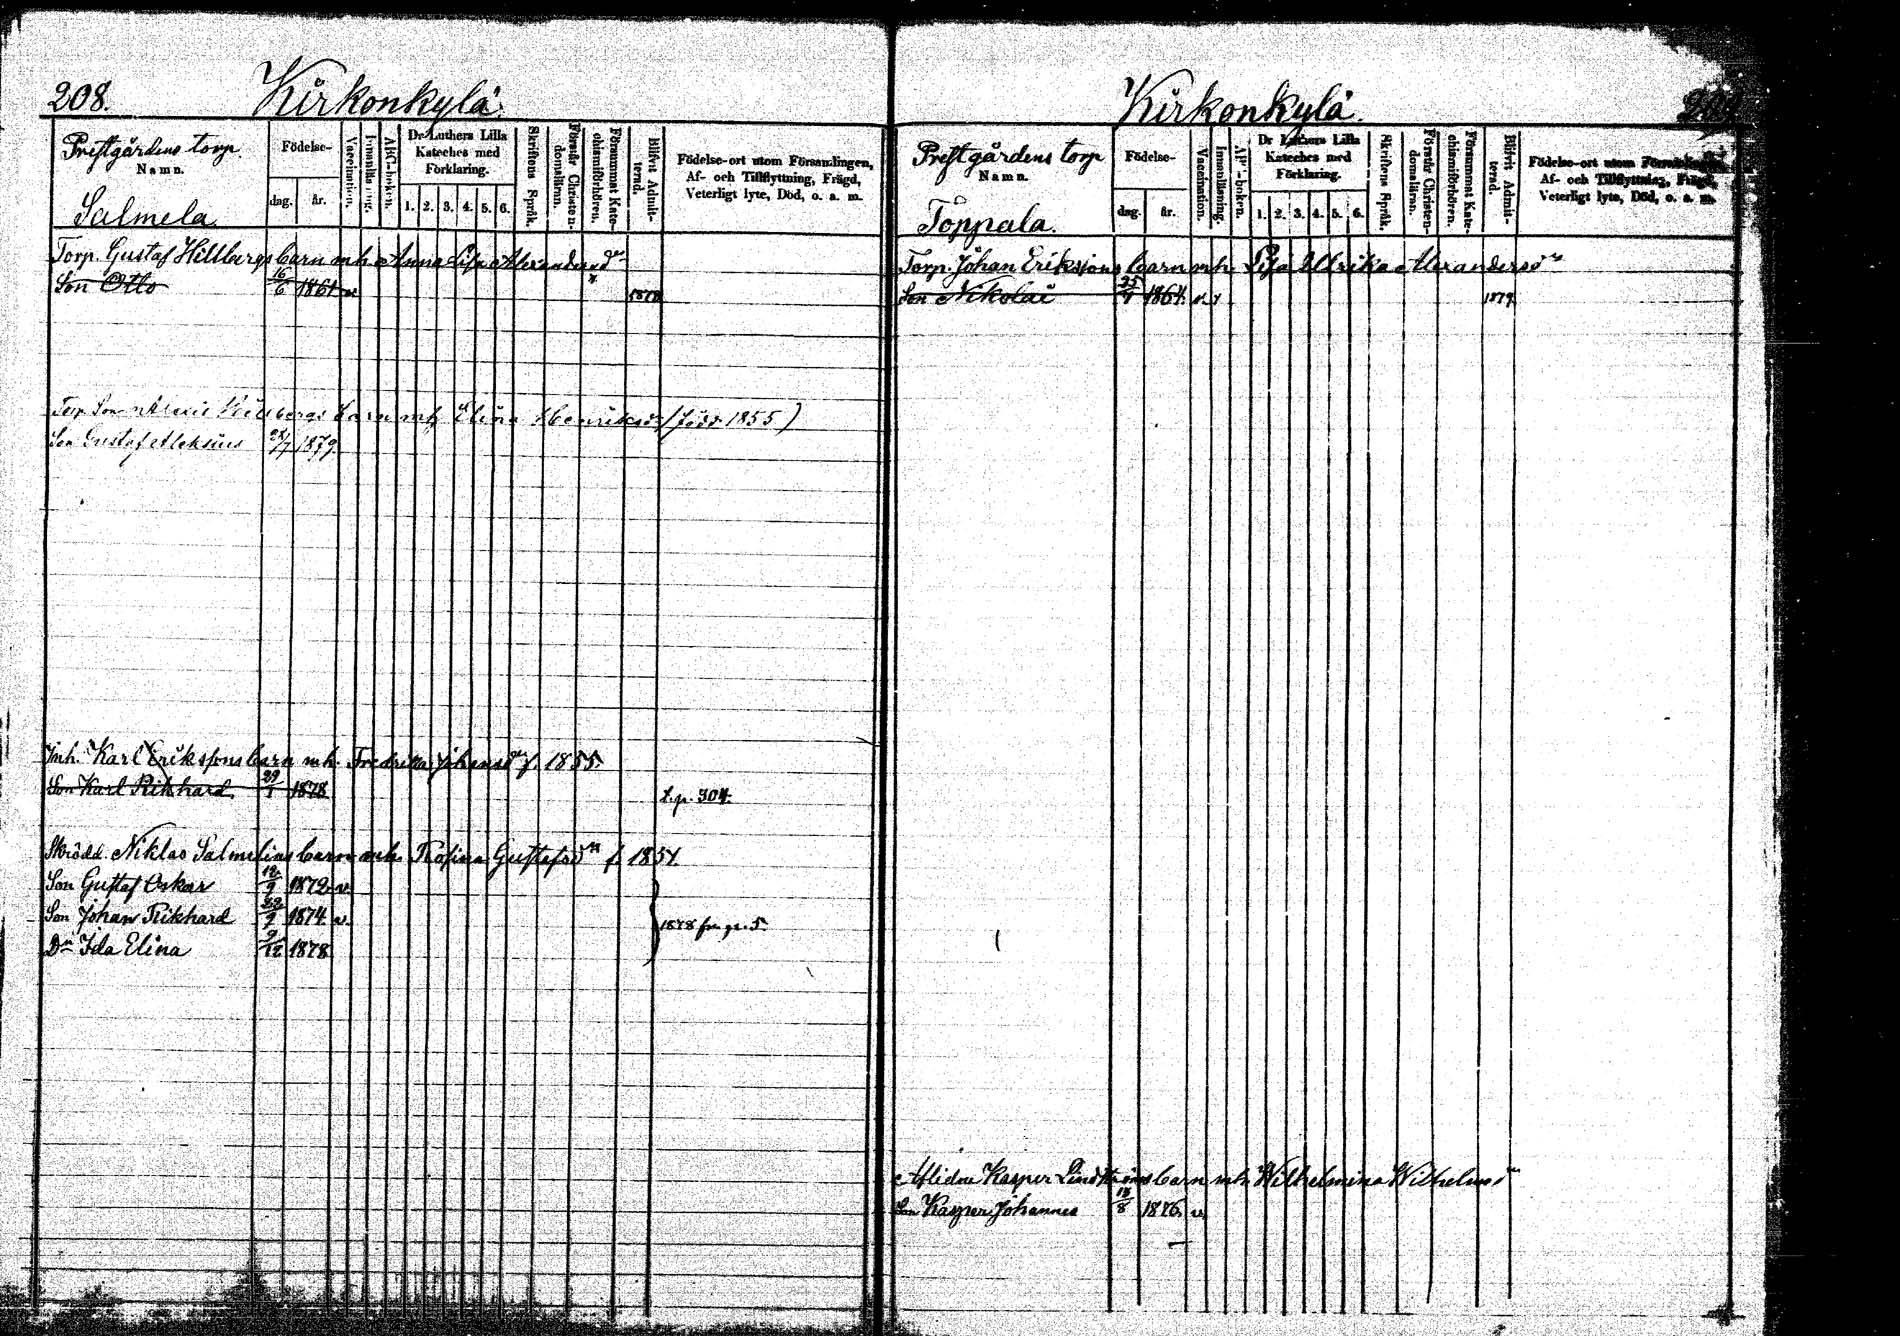 208.
Kirkonkylä.
Prestgårdens torp.
Namn.
Salmela.
Födelse-
dag.
år.
Vaccination.
Innanläsning.
ABC-boken.
Dr Luthers Lilla
Kateches med
Förklaring.
1. 2. 3. 4. 5. 6.
Skriftens Språk.
Förstår Christen-
domsläran.
Försummat Kate-
chismiförhören.
Blifvit Admit-
terad.
Födelse-ort utom Församlingen,
Af- och Tillflyttning, Frägd,
Veterligt lyte, Död, o. a. m.
Torp. Gustaf Hillbergs barn mh. Anna Lisa Alexandersdr
Son Otto 16/6 1861 v. 1878
Torp. Son barn mh Elina Henriksdr (född 1855)
Son Gustaf Aleksius 28/7 1879.
Inh. Karl Erikssons barn mh. Fredrika Johansdr f. 1855.
Son Karl Rikhard 29/1 1878 t.p. 304.
Skrädd. Niklas Salmelins barn mh. Rosina Gustafsdr f. 1851.
Son Gustaf Oskar 12/9 1872 v.
Son Johan Rikhard 28/9 1874 v. 1878 fr. p. 5.
Dr Ida Elina 9/12 1878
Kirkonkylä.
209.
Prestgårdens torp
Namn.
Töppala.
Födelse-
dag.
år.
Vaccination.
Innanläsning.
ABC-boken.
Dr Luthers Lilla
Kateches med
Förklaring.
1. 2. 3. 4. 5. 6.
Skriftens Språk.
Förstår Christen-
domsläran.
Försummat Kate-
chismiförhören.
Blifvit Admit-
terad.
Födelse-ort utom Församlingen,
Af- och Tillflyttning, Frägd,
Veterligt lyte, Död, o. a. m.
Torp. Johan Erikssons barn mh. Lisa Ulrika Alexandersdr
Son Nikolai 1864. v. 1879.
Aflidne Kasper Lindströms barn mh Wilhelmina Wilhelmsdr
Son Kasper Johannes 1876. v.